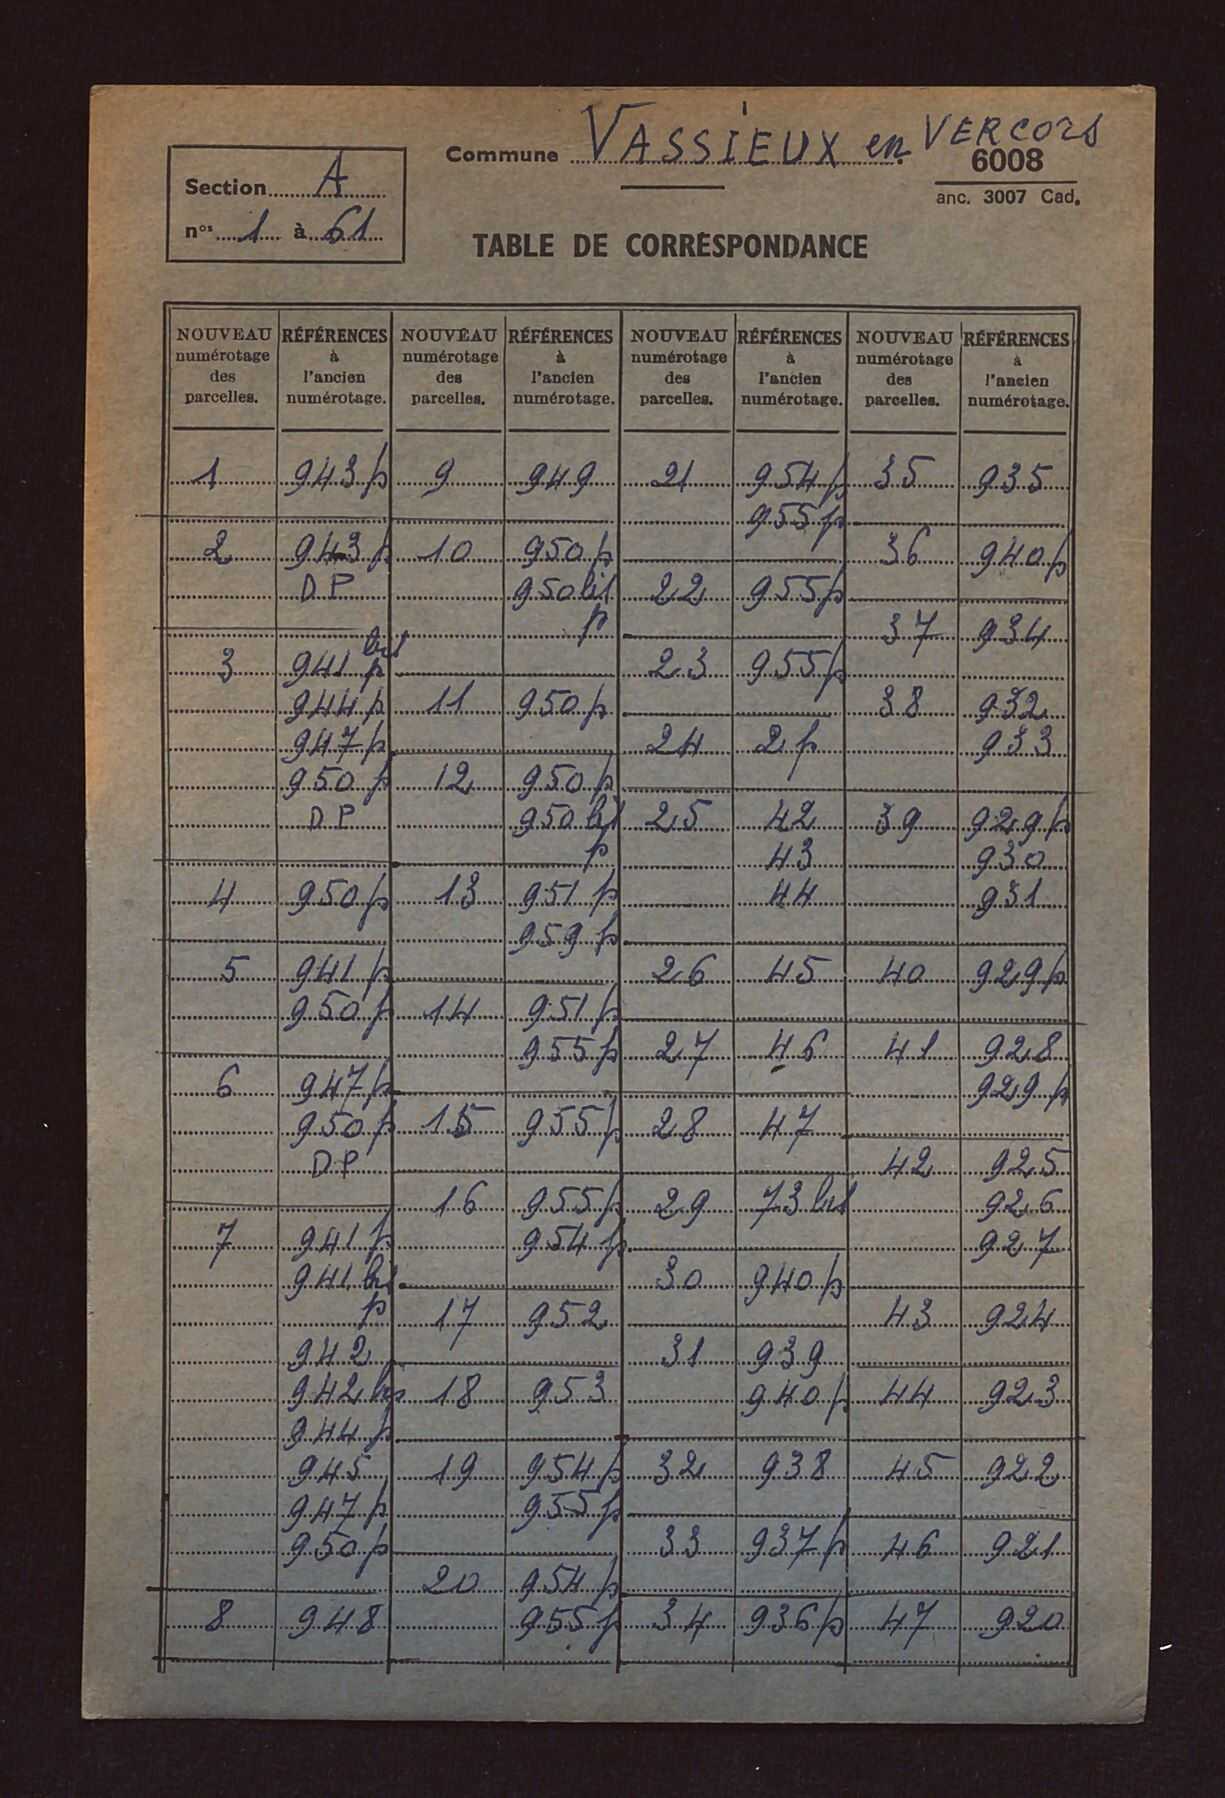 Commune VASSIEUX en VERCORS
6008
anc. 3007 Cad.
Section A
nos 1 à 61
TABLE DE CORRESPONDANCE
NOUVEAU numérotage des parcelles. | RÉFÉRENCES à l'ancien numérotage. | NOUVEAU numérotage des parcelles. | RÉFÉRENCES à l'ancien numérotage. | NOUVEAU numérotage des parcelles. | RÉFÉRENCES à l'ancien numérotage. | NOUVEAU numérotage des parcelles. | RÉFÉRENCES à l'ancien numérotage.
1 943 p
2 943 p
DP
3 941 bis p
944 p
947 p
950 p
DP
4 950 p
5 941 p
950 p
6 947 p
950 p
DP
7 941 p
941 bis
p
942
942 bis
944 p
945
947 p
950 p
8 948
9 949
10 950 p
950 bis
p
11 950 p
12 950 p
950 bis
p
13 951 p
959 p
14 951 p
955 p
15 955 p
16 955 p
954 p
17 952
18 953
19 954 p
955 p
20 954 p
955 p
21 954 p
955 p
22 955 p
23 955 p
24 2 p
25 42
43
44
26 45
27 46
28 47
29 73 bis
30 940 p
31 939
940 p
32 938
33 937 p
34 936 p
35 935
36 940 p
37 934
38 932
933
39 929 p
930
931
40 929 p
41 928
929 p
42 925
926
927
43 924
44 923
45 922
46 921
47 920